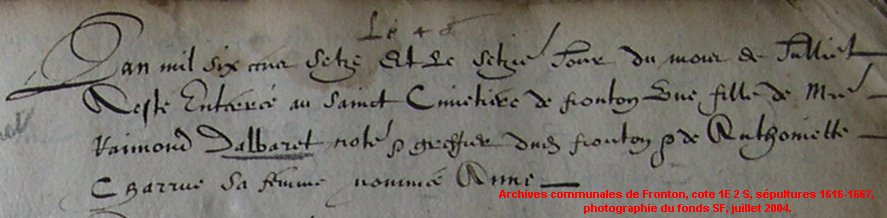 Lan mil six cens setze et le setzie Jour du mois de Julliet
A este Enterré au Sainct Cimetière de fronton Une fille de Me
Raimond Dalbaret note greffier dud fronton de Anthoniette
Charrue sa femme nommée Anne
Archives communales de Fronton, cote 1E 2 S, sépultures 1616-1667,
photographie du fonds SF, juillet 2004.